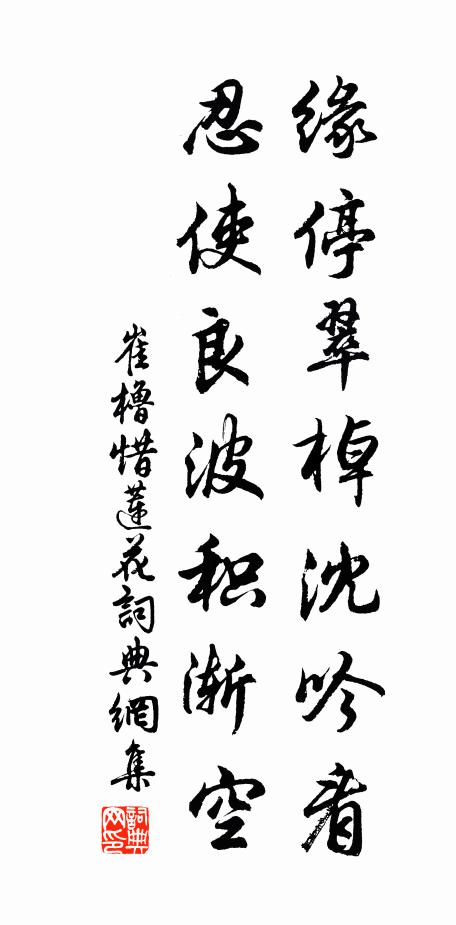 缘停翠棹沈吟看
忍使良波积渐空
崔橹惜莲花詞典網集
詞典网印